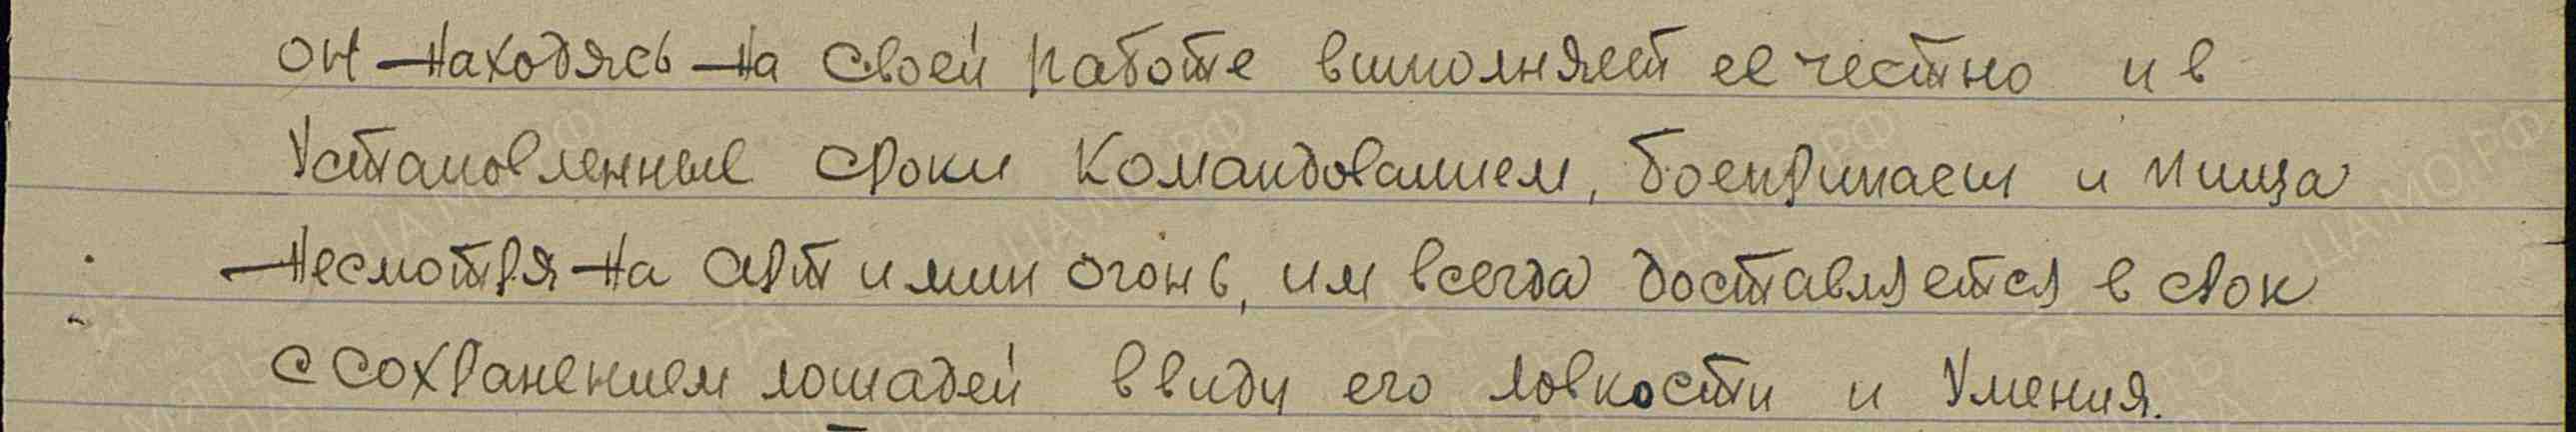 он находясь на своей работе выполняет ее честно и в
установленные сроки командованием, боеприпаси и пища
несмотря на арт и мин огонь, им всегда доставляется в срок
с сохранением лошадей ввиду его ловкости и умения.